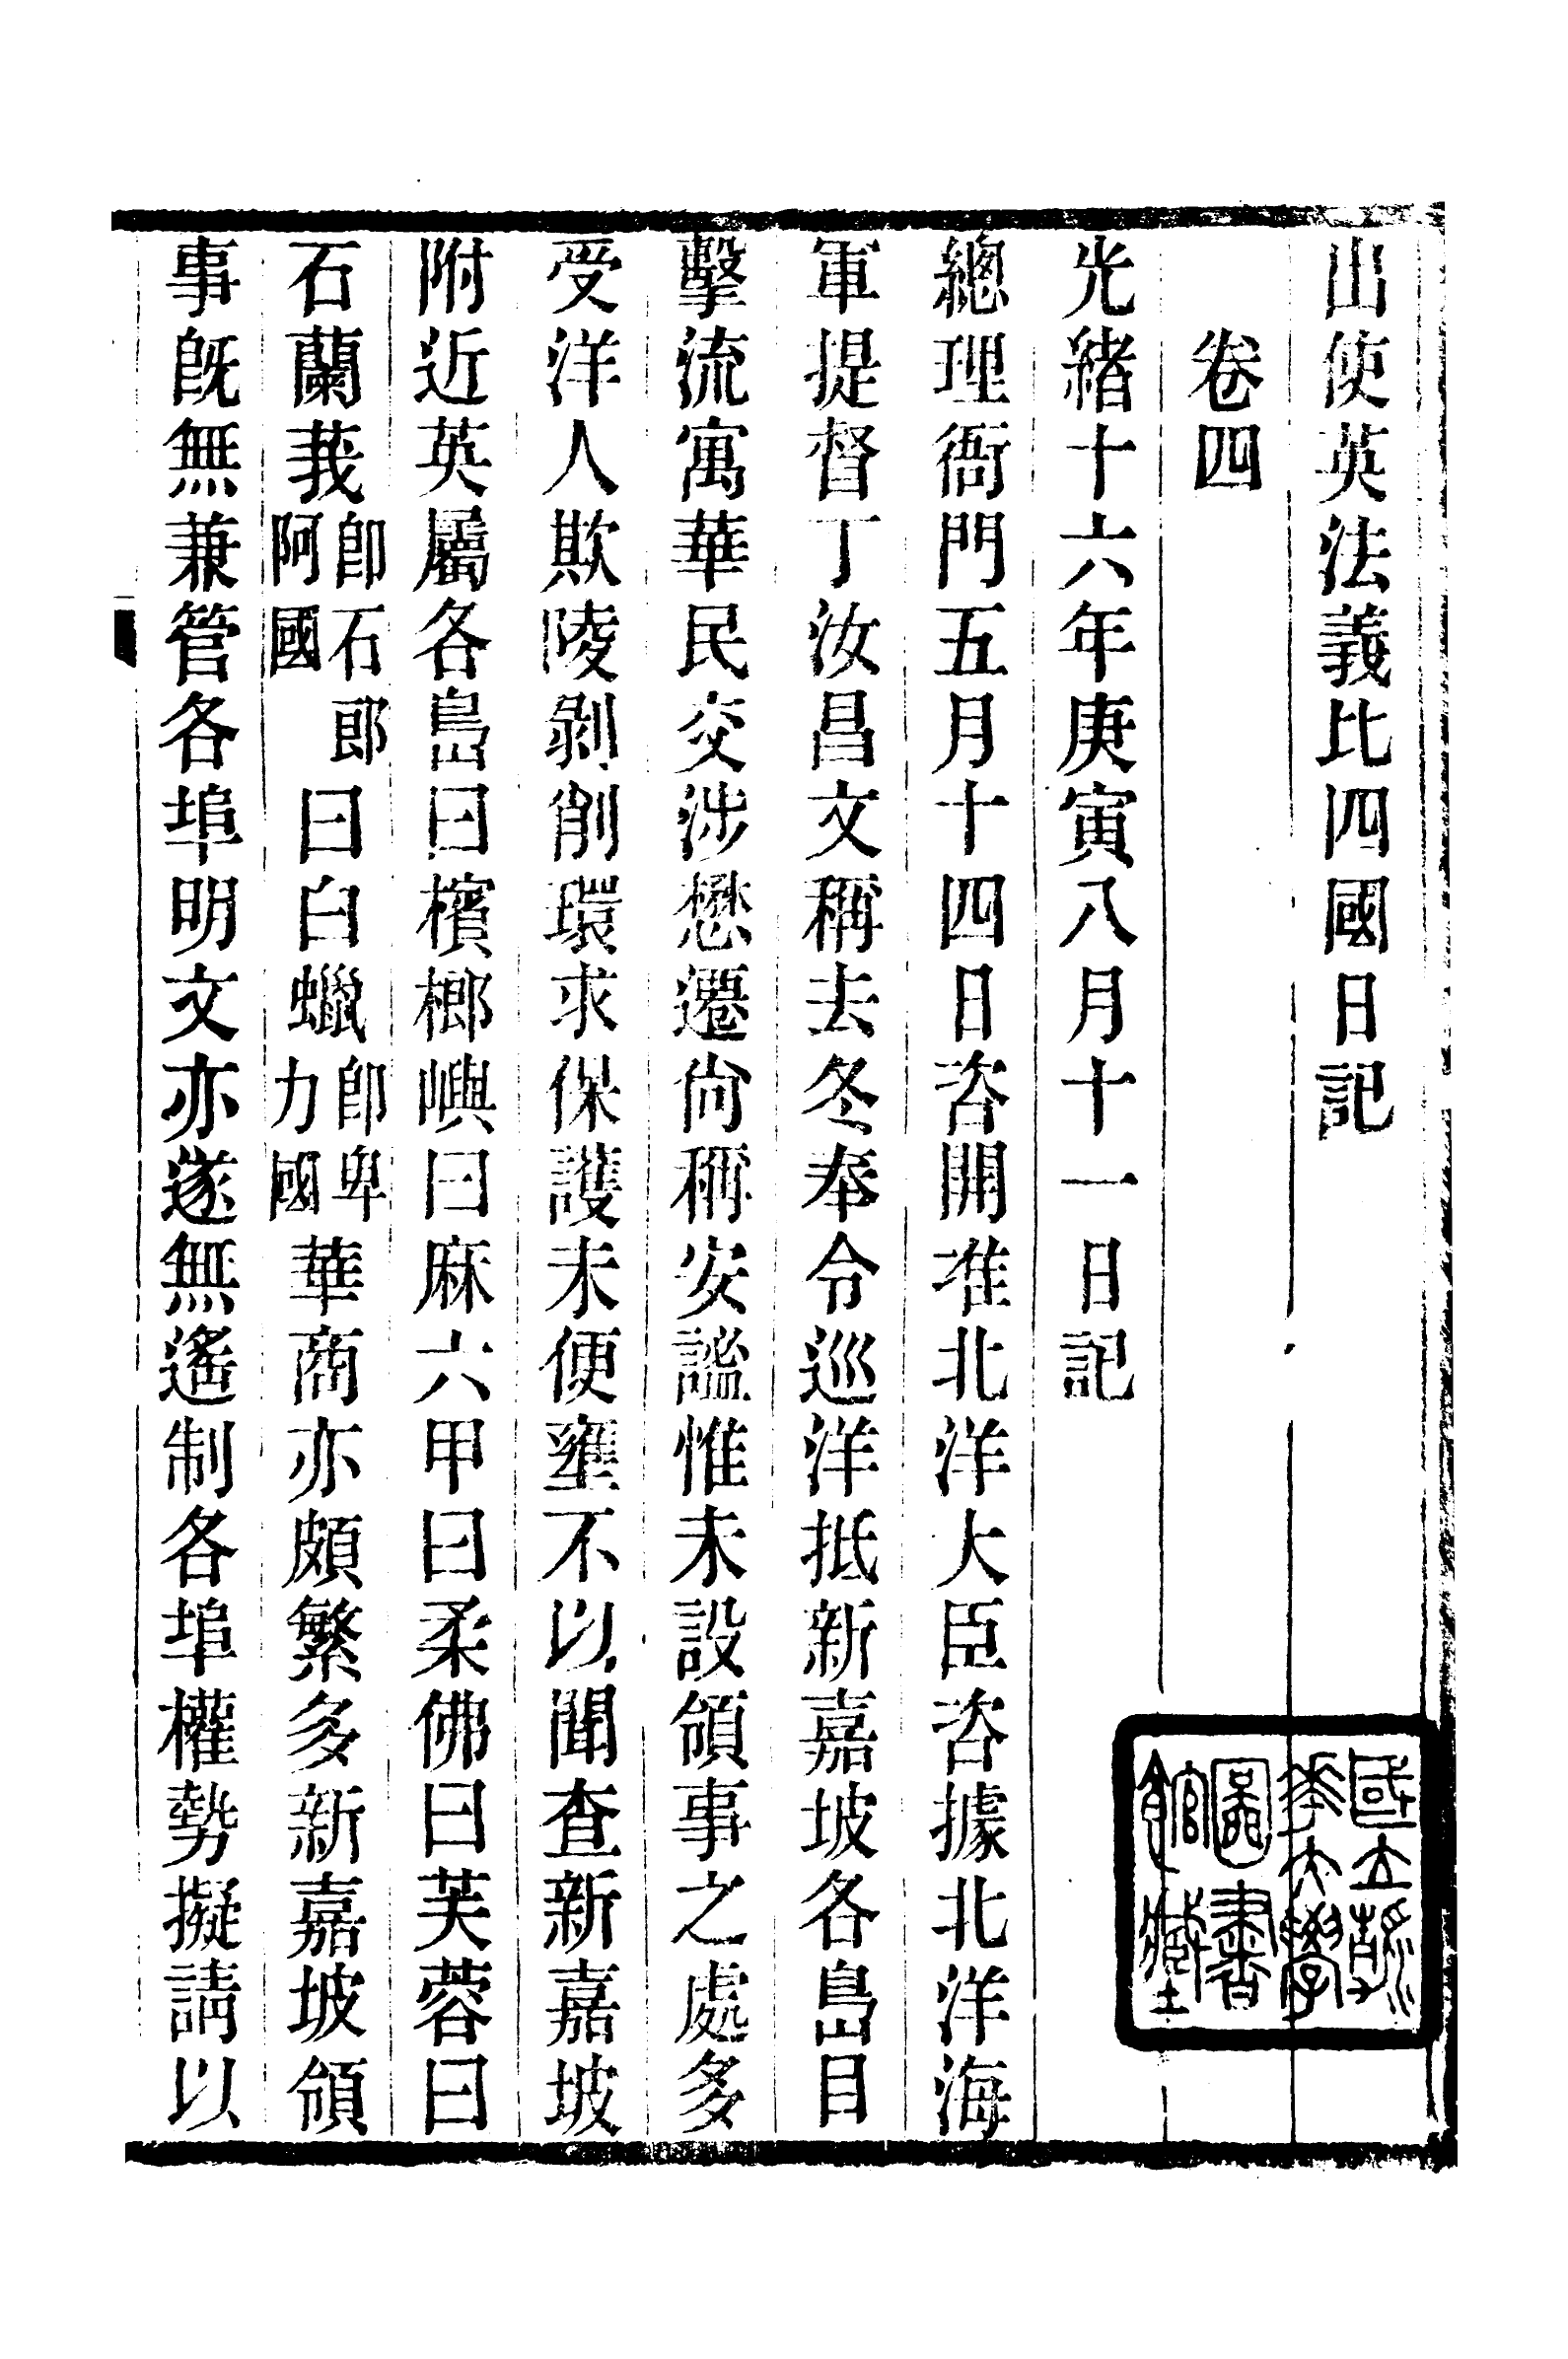 出使英法義比四國日記
卷四
光緒十六年庚寅八月十一日記
總理衙門五月十四日咨開准北洋大臣咨據北洋海
軍提督丁汝昌文稱去冬奉令巡洋抵新嘉坡各島目
擊流寓華民交涉懋遷尙稱安謐惟未設領事之處多
受洋人欺陵剝削環求保護未便壅不以聞查新嘉坡
附近英屬各島曰檳榔嶼曰麻六甲曰柔佛曰芙蓉曰
石蘭莪卽石郎阿國曰白蠟卽卑力國華商亦頗繁多新嘉坡領
事旣無兼管各埠明文亦遂無遙制各埠權勢擬請以
國立清華大學圖書館藏